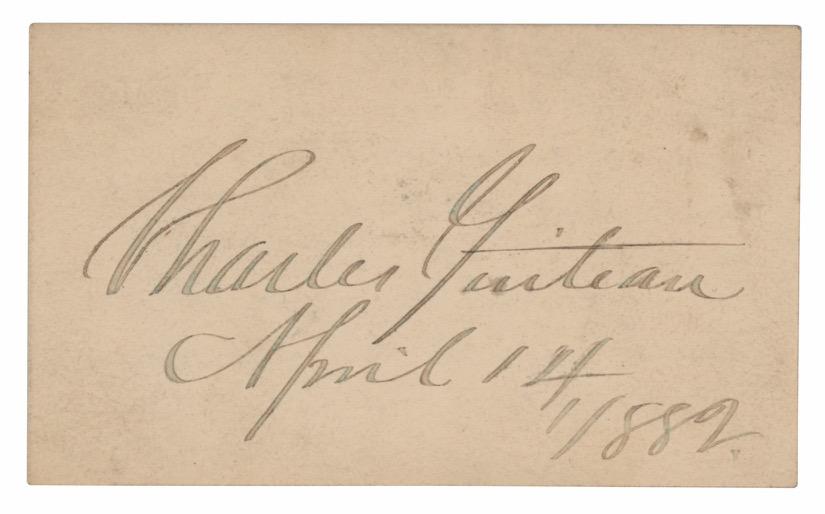 Charles Guiteau
April 14
1882.